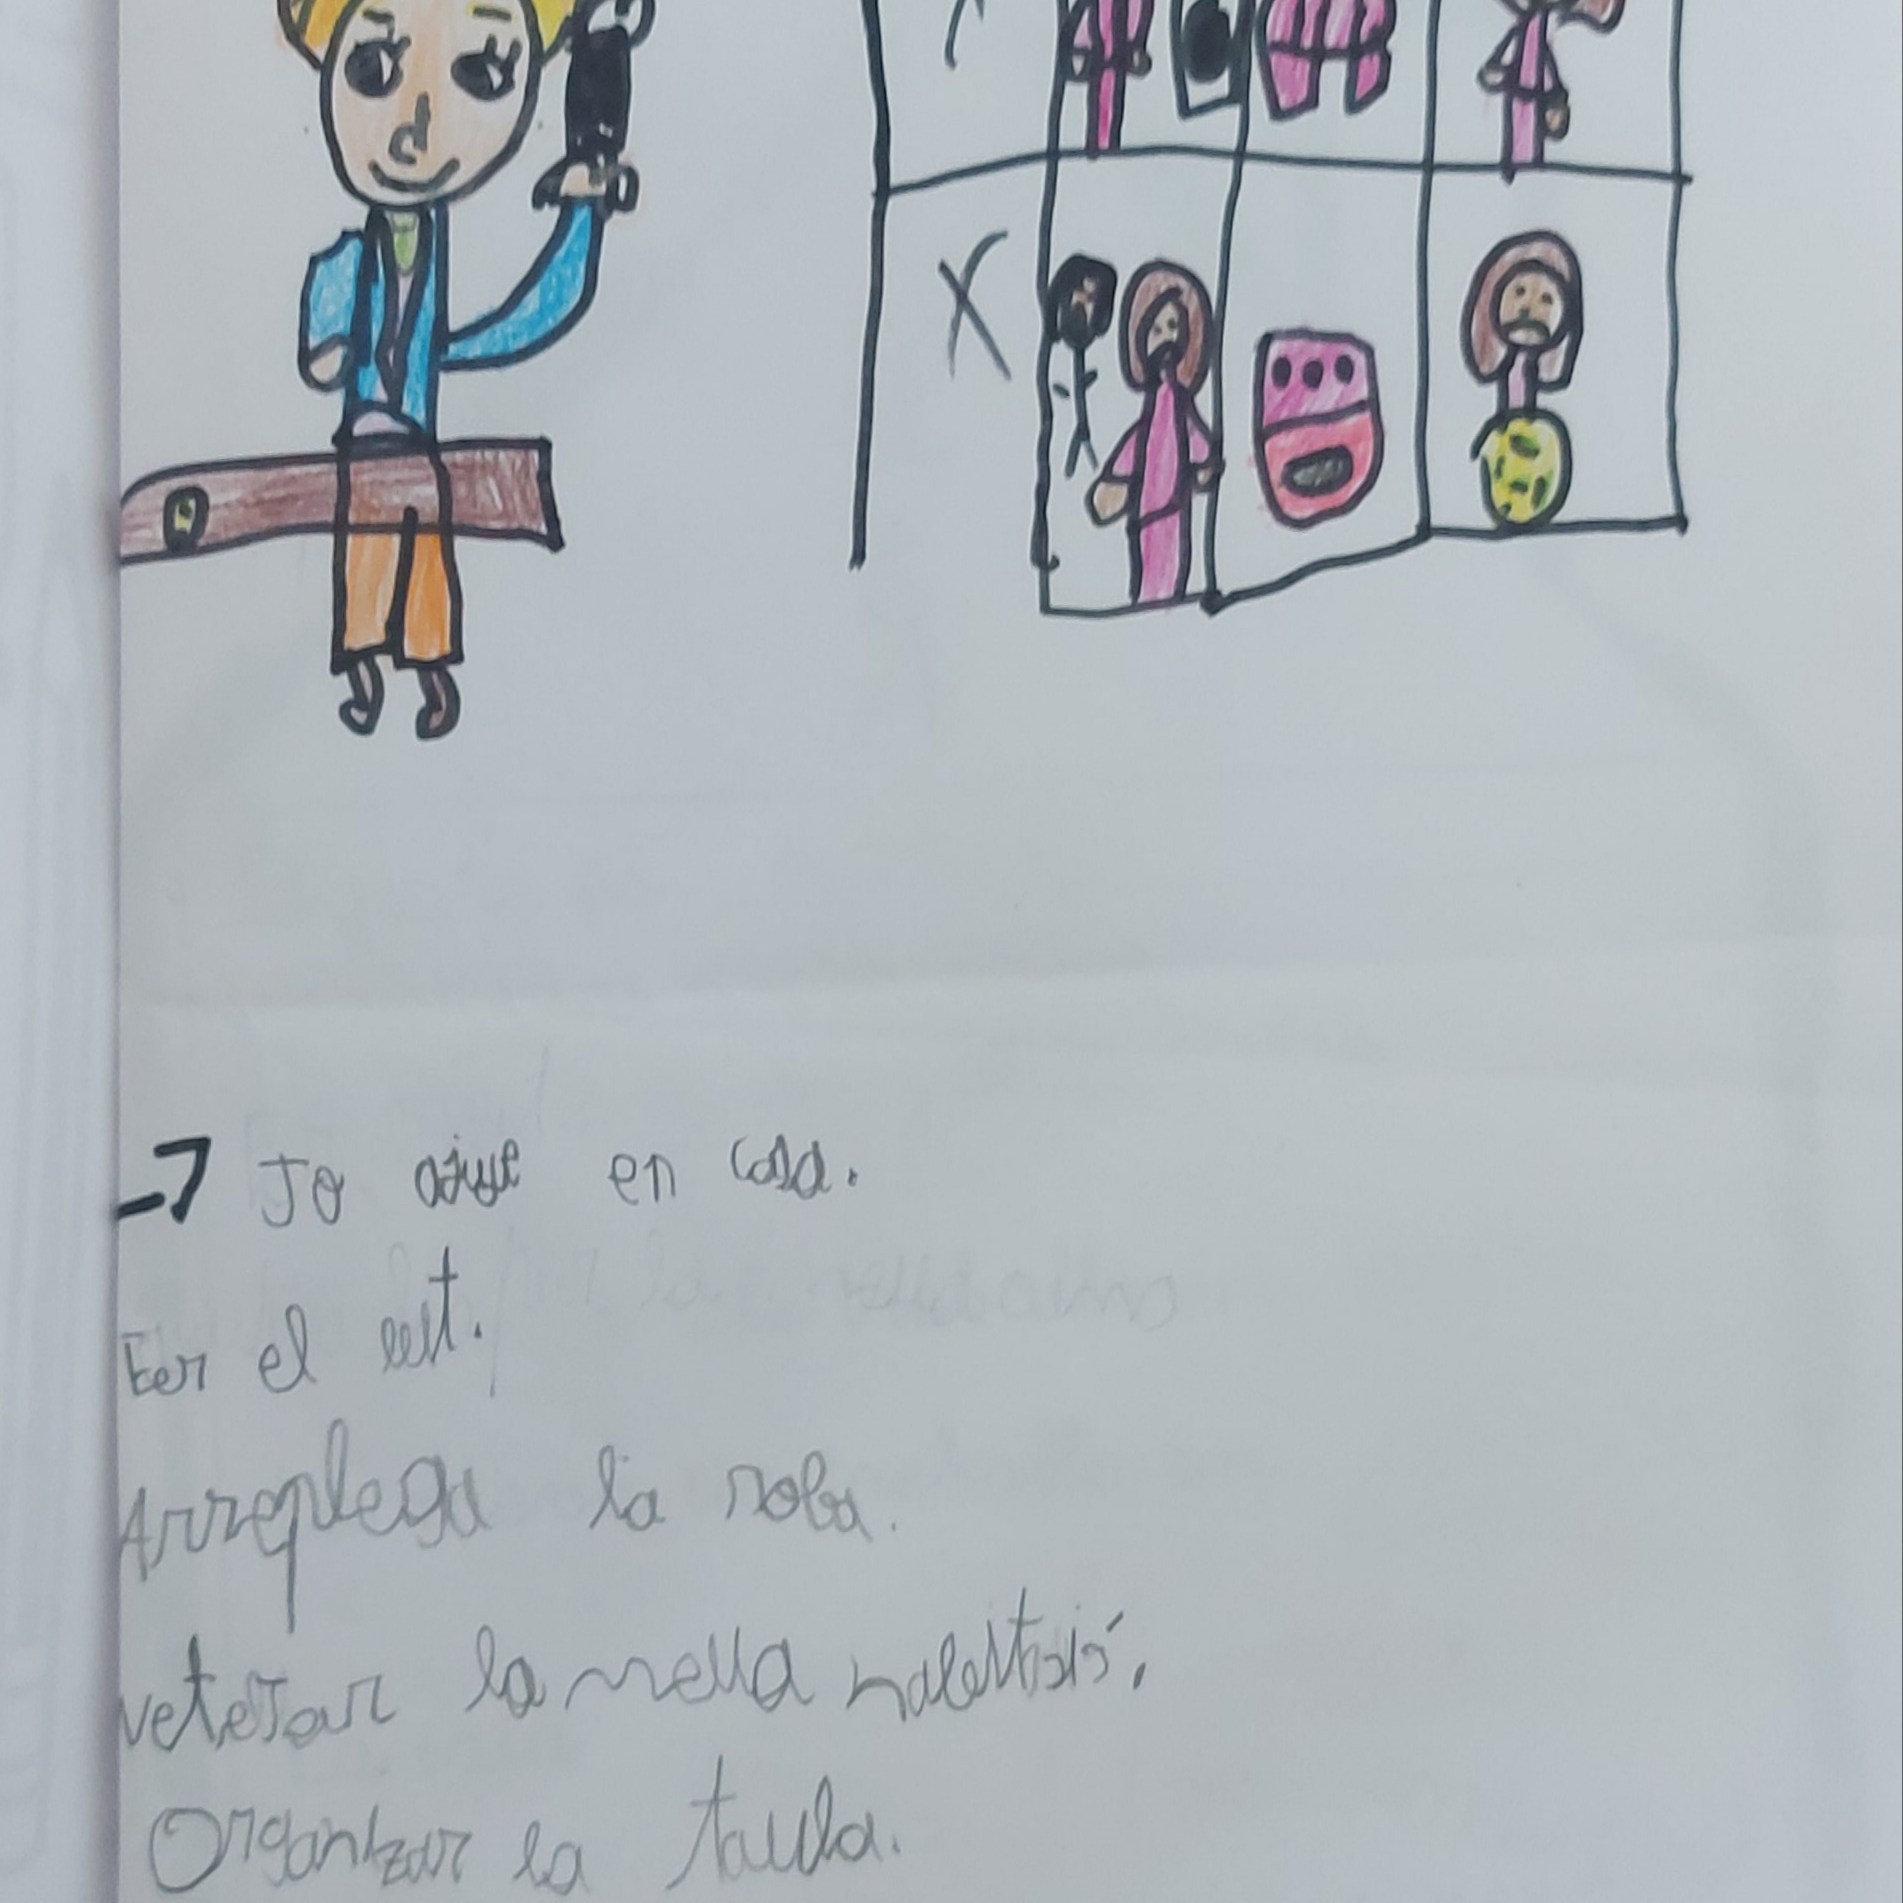 X
→ Jo ajue en casa.
Fer el llit.
Arreplega la roba.
Netejar la mella habitasió.
Organizar la taula.